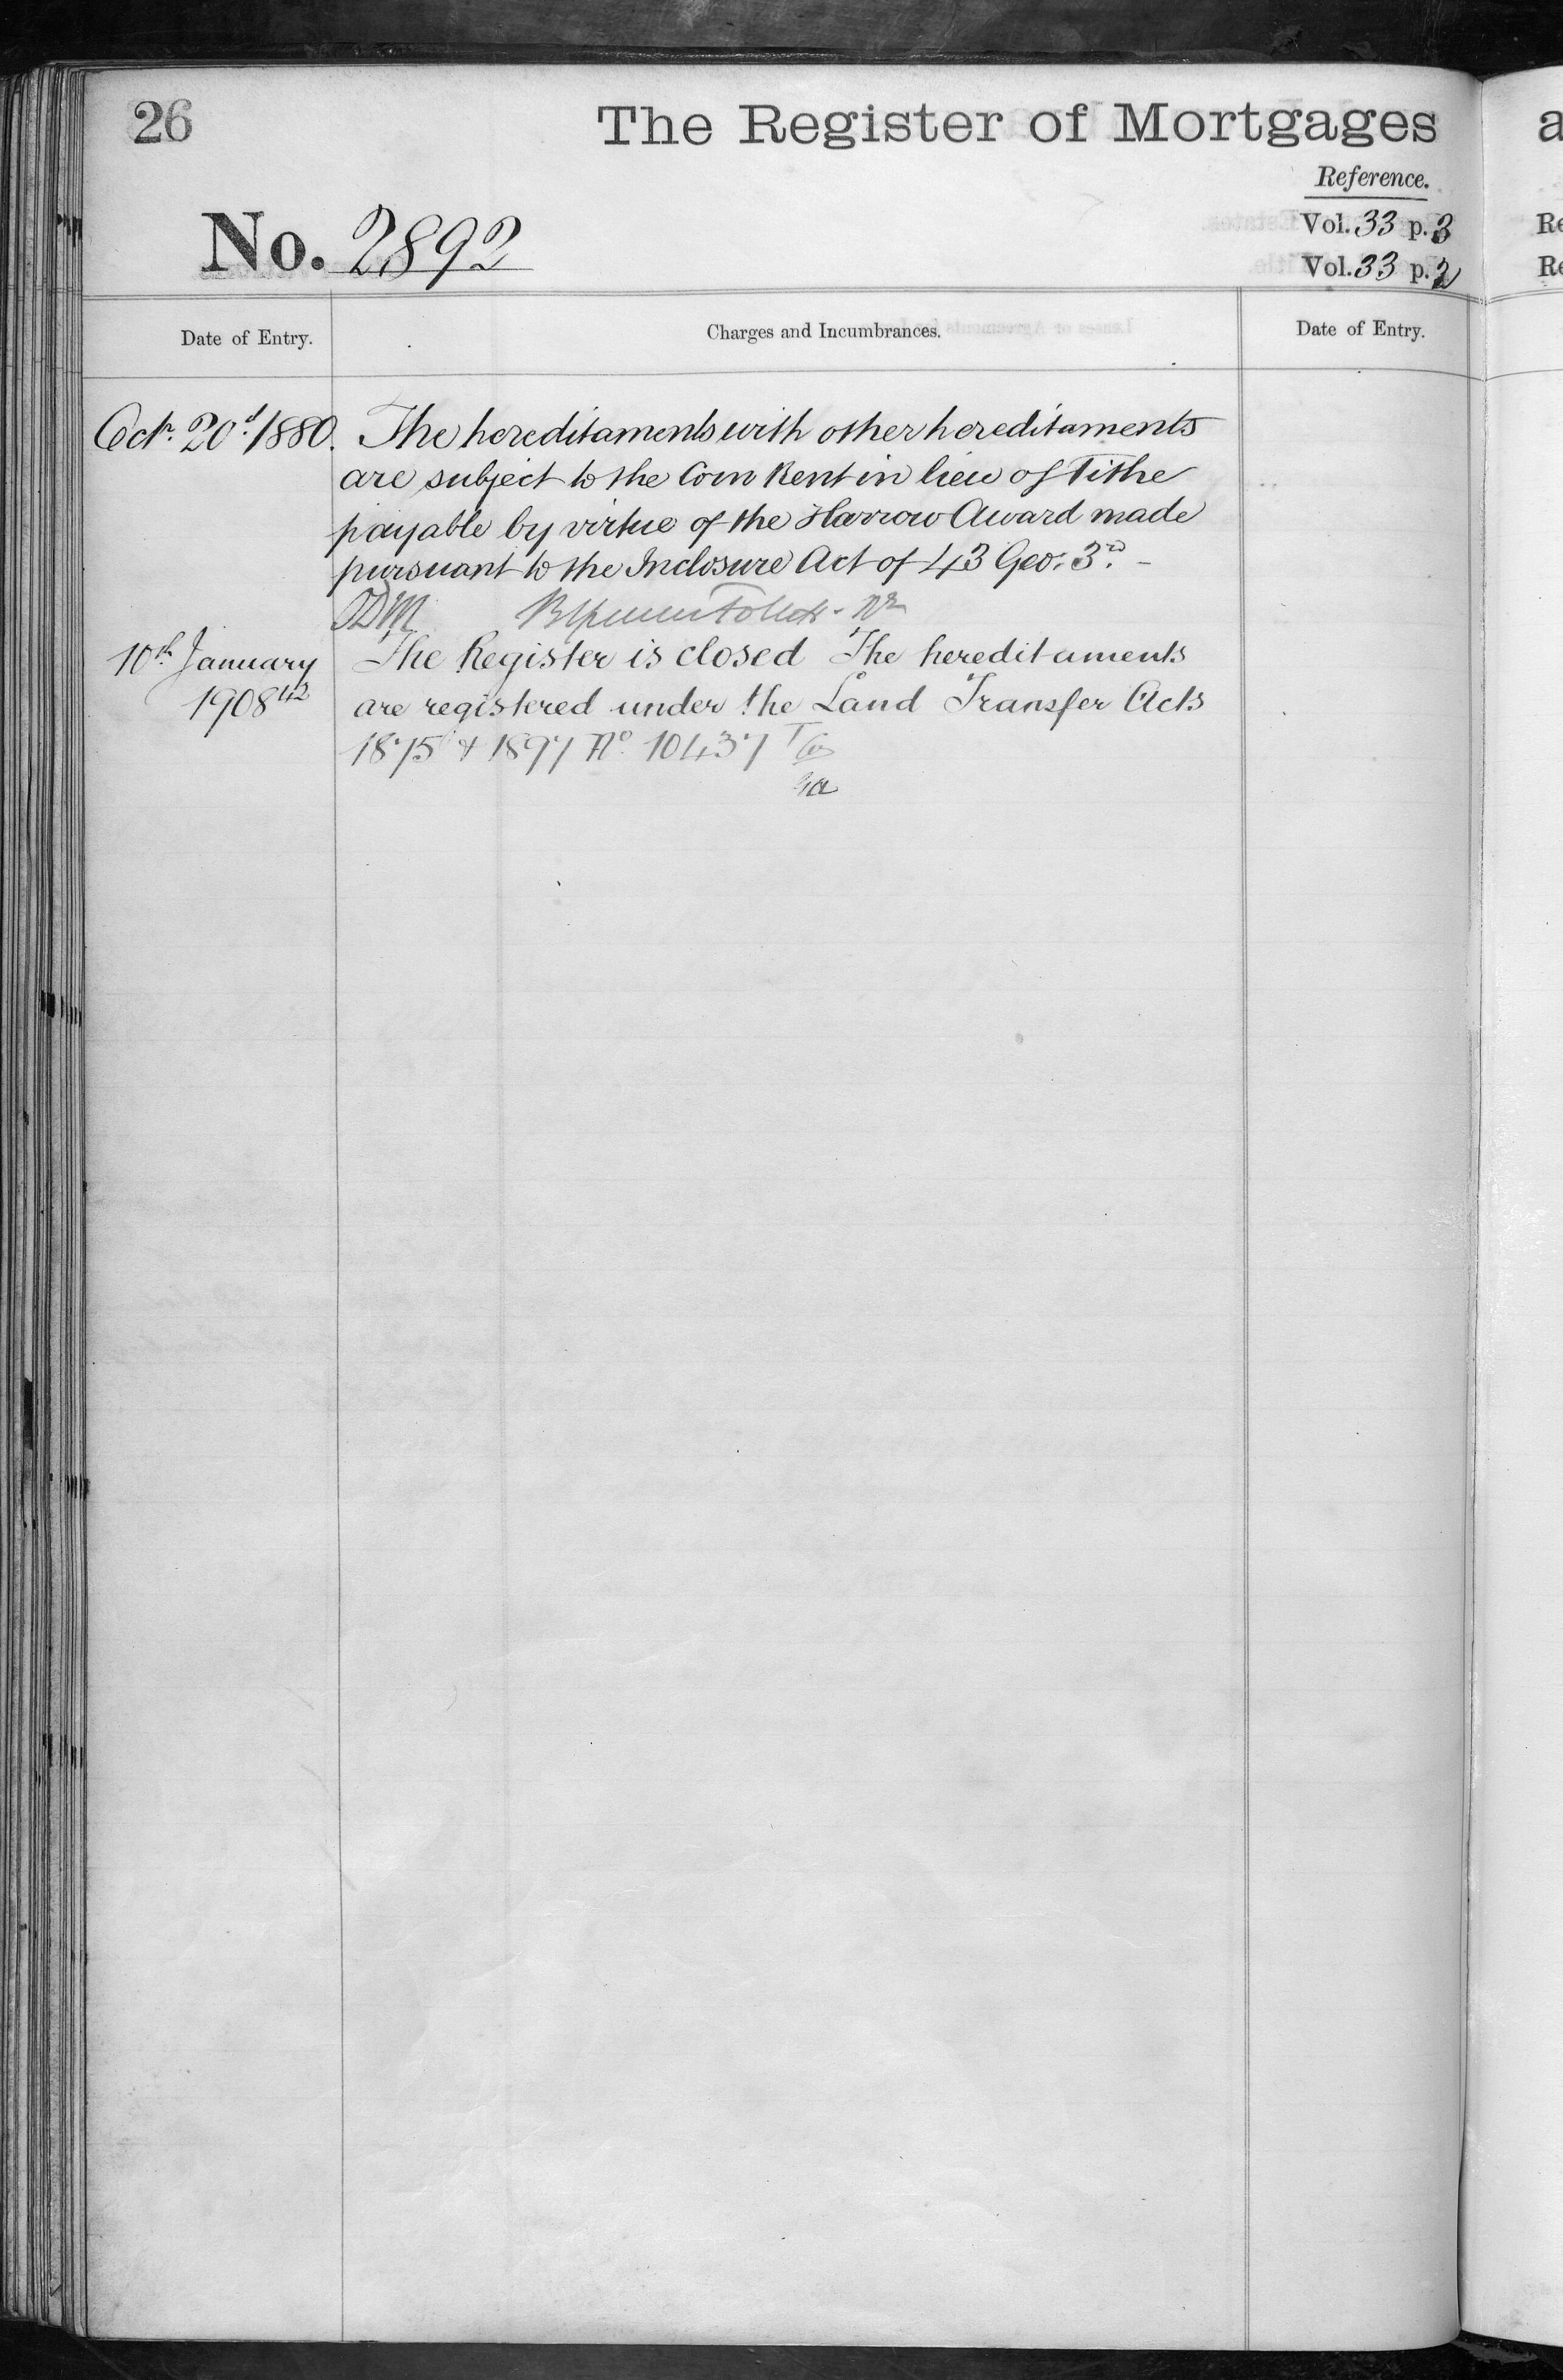 26
The Register of Mortgages
Reference.
No. 2892
Vol. 33 p. 3
Vol. 33 p. 2
Date of Entry.
Charges and Incumbrances.
Date of Entry.
Octr. 20d. 1880. The hereditaments with other hereditaments
are subject to the Corn Rent in lieu of Tithe
payable by virtue of the Harrow Award made
pursuant to the Inclosure Act of 43 Geo: 3rd. -
10th January The Register is closed The hereditaments
1908 are registered under the Land Transfer Acts
1875 & 1897 No. 10437
a
Re
Re